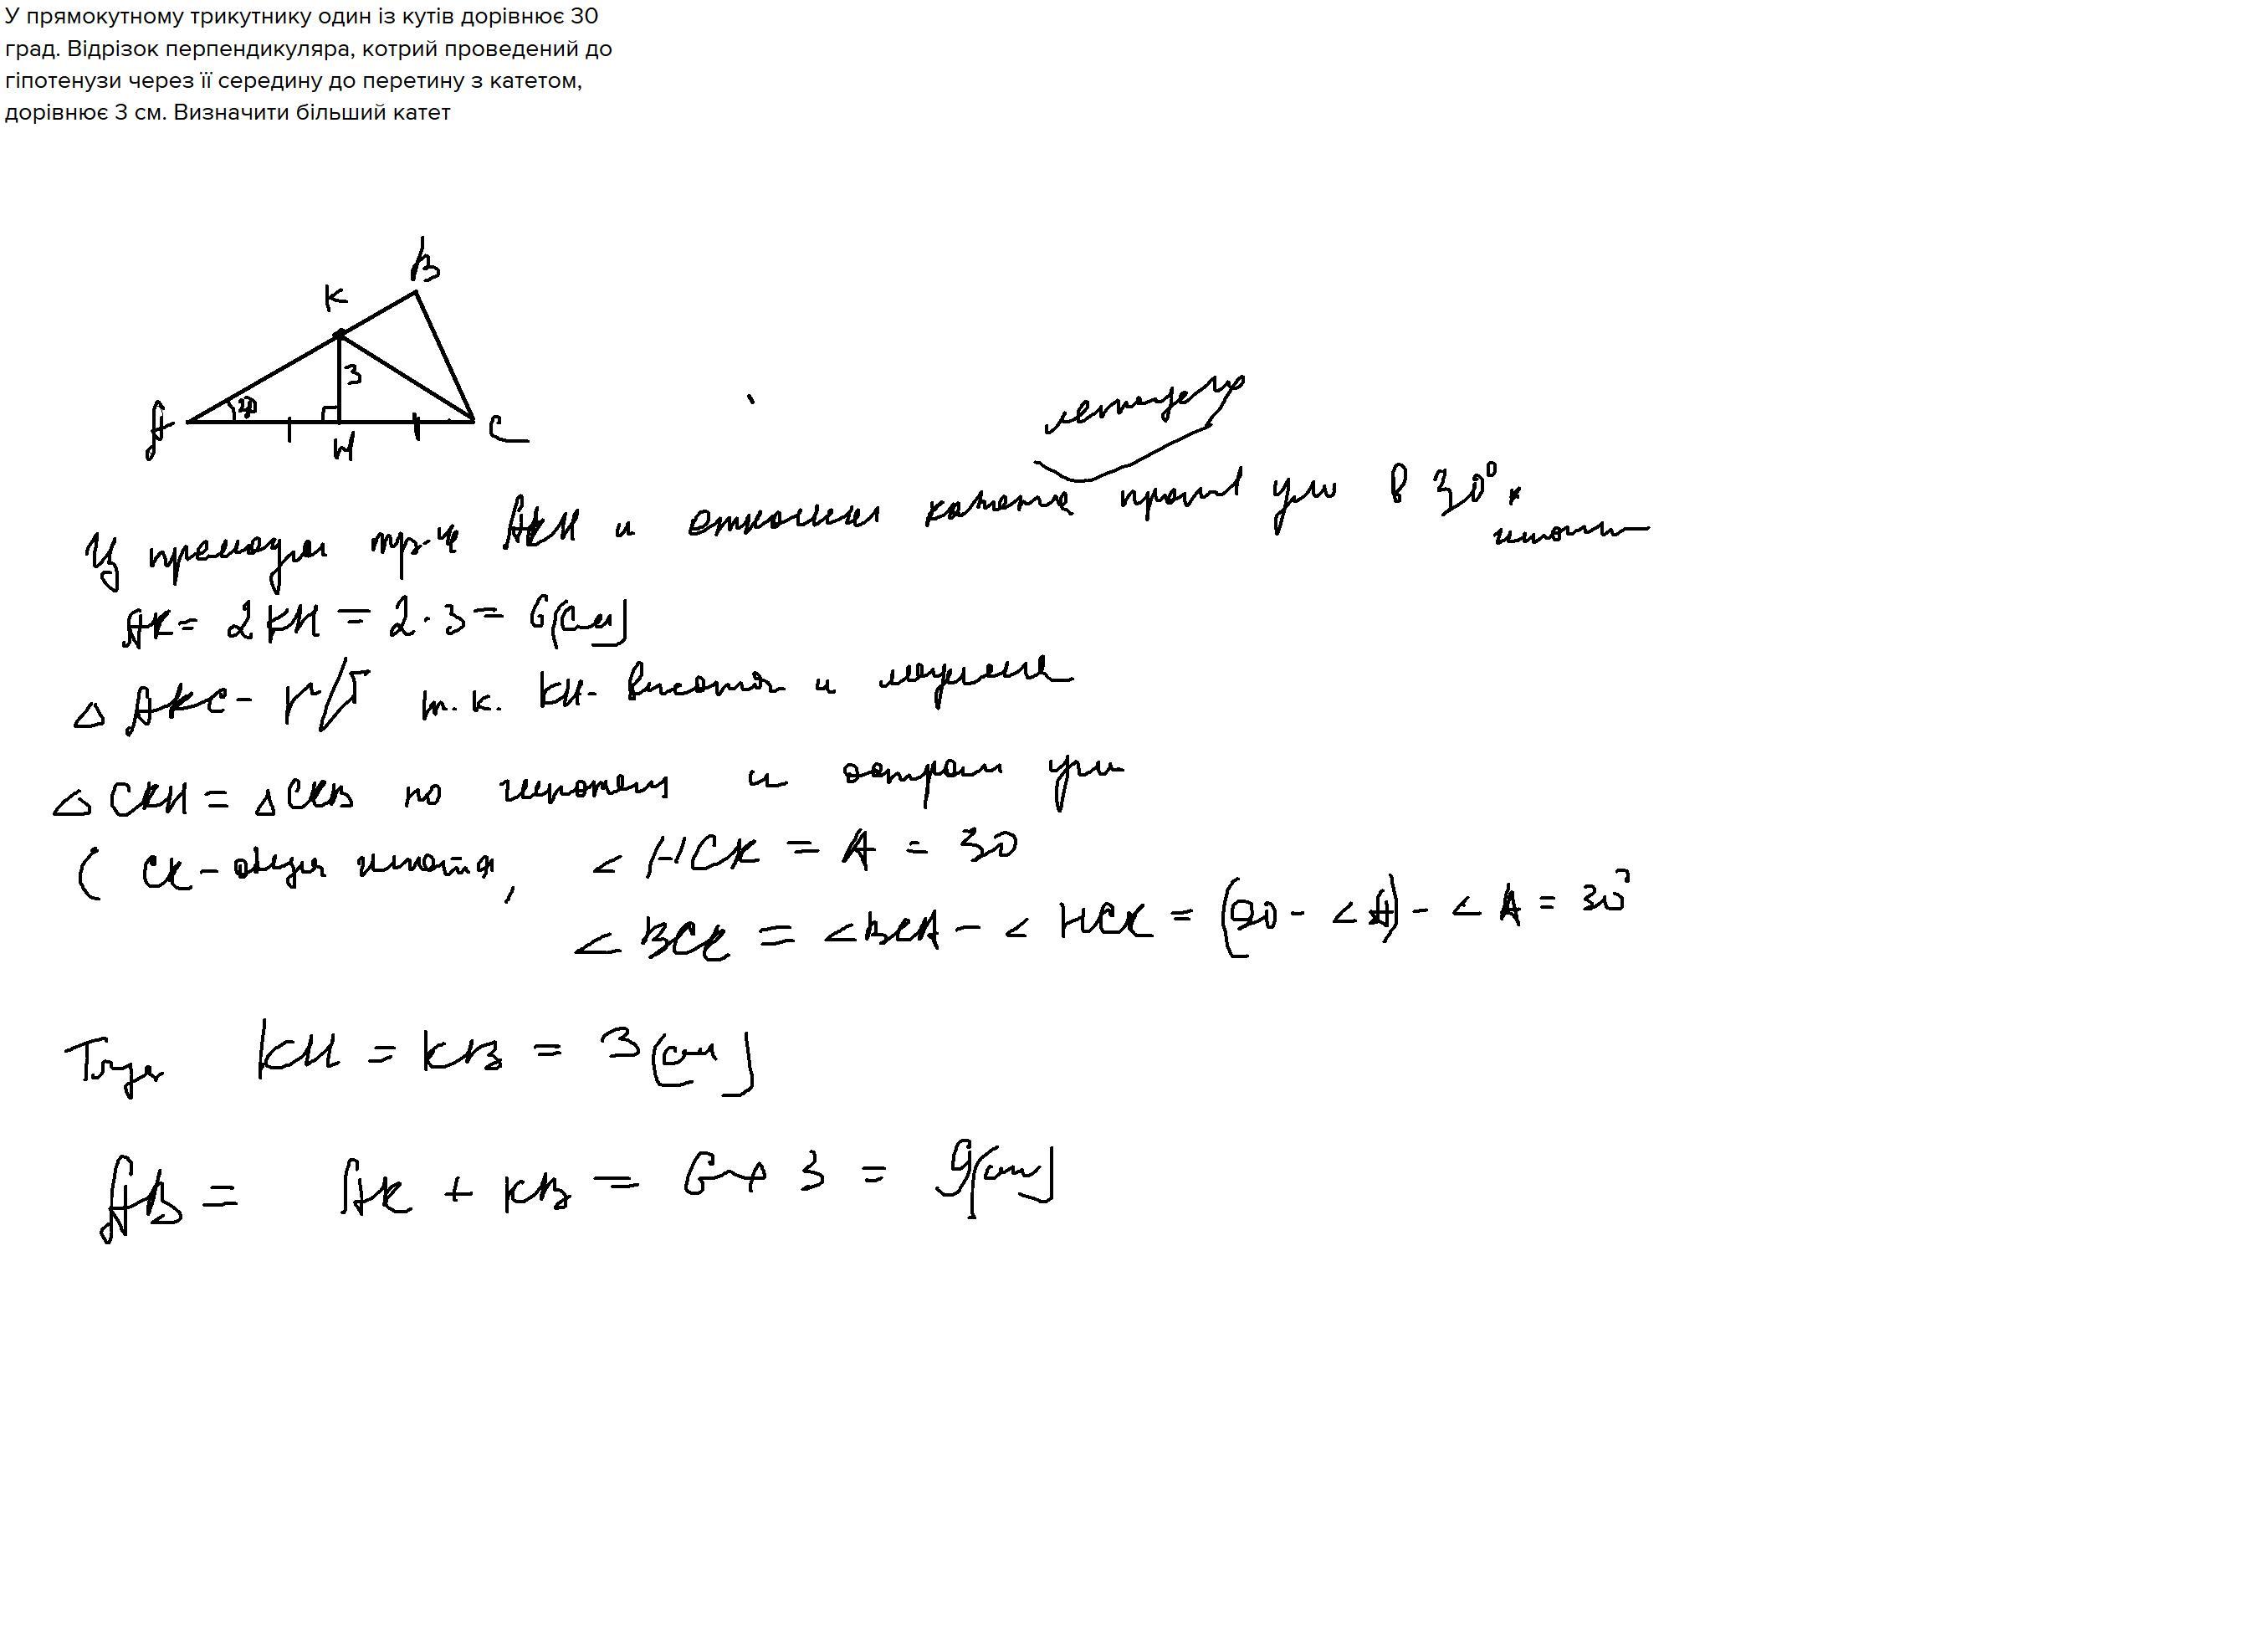 У прямокутному трикутнику один із кутів дорівнює 30
град. Відрізок перпендикуляра, котрий проведений до
гіпотенузи через її середину до перетину з катетом,
дорівнює 3 см. Визначити більший катет
B
K
3
30
A
H
C
Из тр-ка AKH и катета против угла в 30° к
AK = 2KH = 2·3 = 6(см)
△ AKC - р/б т.к. KH - высота и медиана
△ CKH = △ CKB по гипотен и острому углу
( CK - общая гипот-я, ∠ HCK = A = 30
∠ BCK = ∠ BCA - ∠ HCK = (90 - ∠ A) - ∠ A = 30°
Тогда KH = KB = 3(см)
AB = AK + KB = 6 + 3 = 9(см)